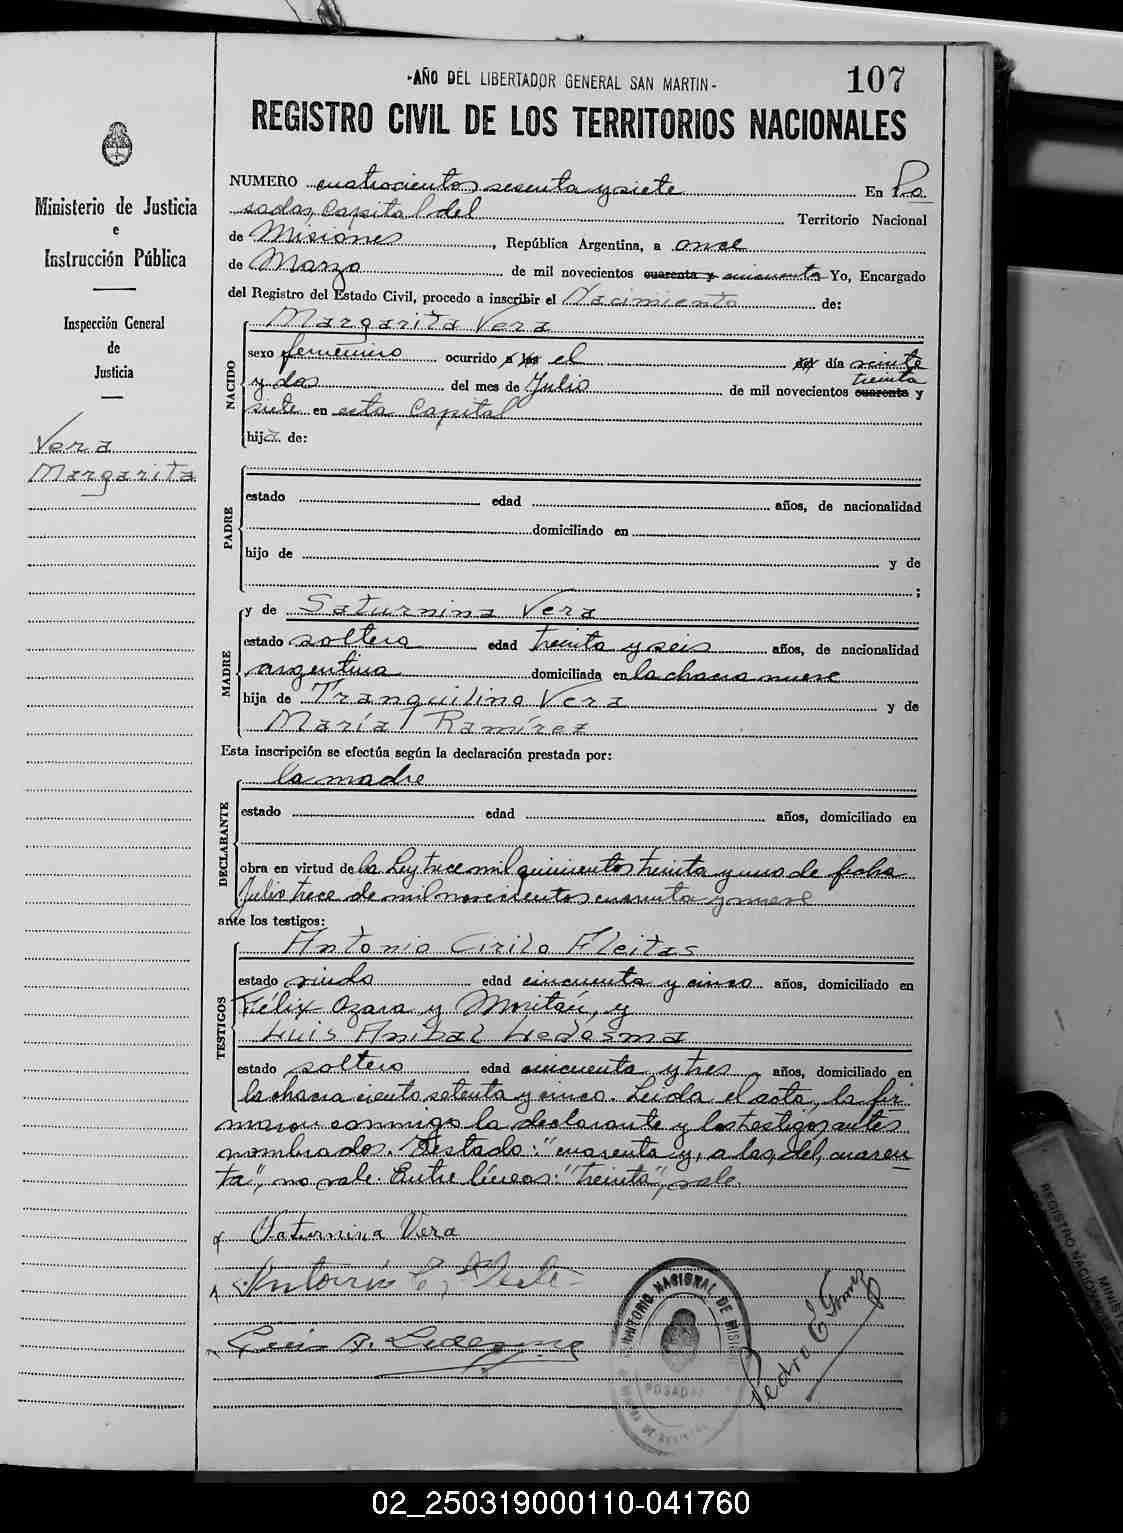 -AÑO DEL LIBERTADOR GENERAL SAN MARTIN-
107
REGISTRO CIVIL DE LOS TERRITORIOS NACIONALES
Ministerio de Justicia
e
Instrucción Pública
Inspección General
de
Justicia
Vera
Margarita
NUMERO cuatrocientos sesenta y siete En Po
sadas, Capital del Territorio Nacional
de Misiones, República Argentina, a once
de Marzo de mil novecientos cuarenta y cincuenta Yo, Encargado
del Registro del Estado Civil, procedo a inscribir el Nacimiento de:
NACIDO
Margarita Vera
sexo femenino ocurrido a las el del día veinte
y dos del mes de Julio de mil novecientos cuarenta treinta y
siete en esta Capital
hija de:
PADRE
estado edad años, de nacionalidad
domiciliado en
hijo de y de
;
MADRE
y de Saturnina Vera
estado soltera edad treinta y seis años, de nacionalidad
argentina domiciliada en la chacra nueve
hija de Tranquilino Vera y de
María Ramírez
Esta inscripción se efectúa según la declaración prestada por:
DECLARANTE
la madre
estado edad años, domiciliado en
obra en virtud de la Ley trece mil quinientos treinta y uno de fecha
Julio trece de mil novecientos cuarenta y nueve
ante los testigos:
TESTIGOS
Antonio Cirilo Fleitas
estado viudo edad cincuenta y cinco años, domiciliado en
Félix Azara y Moritán, y
Luis Aníbal Ledesma
estado soltero edad cincuenta y tres años, domiciliado en
la chacra ciento setenta y cinco. Leida el acta, la fir
maron conmigo la declarante y los testigos antes
nombrados. Testado: "cuarenta y, a las, del, cuaren
ta", no vale. Entre líneas: "treinta", vale.
Saturnina Vera
Antonio C.
Luis A. Ledesma
Pedro E Gomez
TERRITORIO NACIONAL DE MISIONES
POSADAS
REGISTRO NACIONAL
MINISTE
02_250319000110-041760